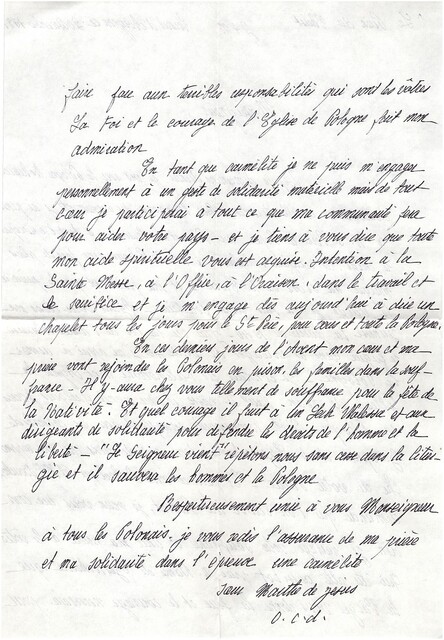 faire face aux terribles responsabilités qui sont les vôtres
La Foi et le courage de l'Eglise de Pologne fait mon
admiration
En tant que carmélite je ne puis m'engager
personnellement à un geste de solidarité matérielle mais de tout
cœur je participerai à tout ce que ma communauté fera
pour aider votre pays - et je tiens à vous dire que toute
mon aide spirituelle vous est acquise. Intention à la
Sainte Messe, à l'Office, à l'Oraison, dans le travail et
le sacrifice et je m'engage dès aujourd'hui à dire un
chapelet tous les jours pour le St Père, pour vous et toute la Pologne.
En ces derniers jours de l'Avent mon cœur et ma
prière vont rejoindre les Polonais en prison, les familles dans la souf-
france - Il y aura chez vous tellement de souffrance pour la fête de
la Nativité. Et quel courage il faut à Lech Walesa et aux
dirigeants de solidarité pour défendre les droits de l'homme et la
liberté - "Le Seigneur vient" répétons nous sans cesse dans la litur-
gie et il sauvera les hommes et la Pologne
Respectueusement unie à vous Monseigneur
à tous les Polonais, je vous redis l'assurance de ma prière
et ma solidarité dans l'épreuve une carmélite
sœur Marthe de jésus
o.c.d.